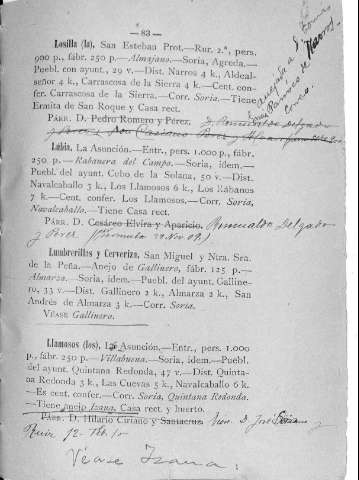 — 83 —
Losilla (la), San Esteban Prot.—Rur. 2.ª, pers.
900 p., fábr. 250 p.—Almajano.—Soria, Agreda.—
Puebl. con ayunt., 29 v.—Dist. Narros 4 k., Aldeal-
señor 4 k., Carrascosa de la Sierra 4 k.—Cent. con-
fer. Carrascosa de la Sierra.—Corr. Soria.—Tiene
Ermita de San Roque y Casa rect.
anejada a S.
Narros
PÁRR. D. Pedro Romero y Pérez. Romualdo Delgado
y Perez
Lubia, La Asunción.—Entr., pers. 1.000 p., fábr.
250 p.—Rabanera del Campo.—Soria, ídem.—
Puebl. del ayunt. Cubo de la Solana, 50 v.—Dist.
Navalcaballo 3 k., Los Llamosos 6 k., Los Rábanos
7 k.—Cent. confer. Los Llamosos.—Corr. Soria,
Navalcaballo.—Tiene Casa rect.
PÁRR. D. Cesáreo Elvira y Aparicio. Romualdo Delgado
y Perez (Permuta 22 Nov 09)
Lumbrerillas y Cerveriza, San Miguel y Ntra. Sra.
de la Peña.—Anejo de Gallinero, fábr. 125 p.—
Almarza.—Soria, ídem.—Puebl. del ayunt. Galline-
ro, 33 v.—Dist. Gallinero 2 k., Almarza 2 k., San
Andrés de Almarza 3 k.—Corr. Soria.
VÉASE Gallinero.
Llamosos (los), La Asunción.—Entr., pers. 1.000
p., fábr. 250 p.—Villabuena.—Soria, ídem.—Puebl.
del ayunt. Quintana Redonda, 47 v.—Dist. Quinta-
na Redonda 3 k., Las Cuevas 5 k., Navalcaballo 6 k.
—Es cent. confer.—Corr. Soria, Quintana Redonda.
—Tiene anejo Izana, Casa rect. y huerto.
PÁRR. D. Hilario Ciriano y Santacruz D. José
Ruiz 12
Vease Izana.